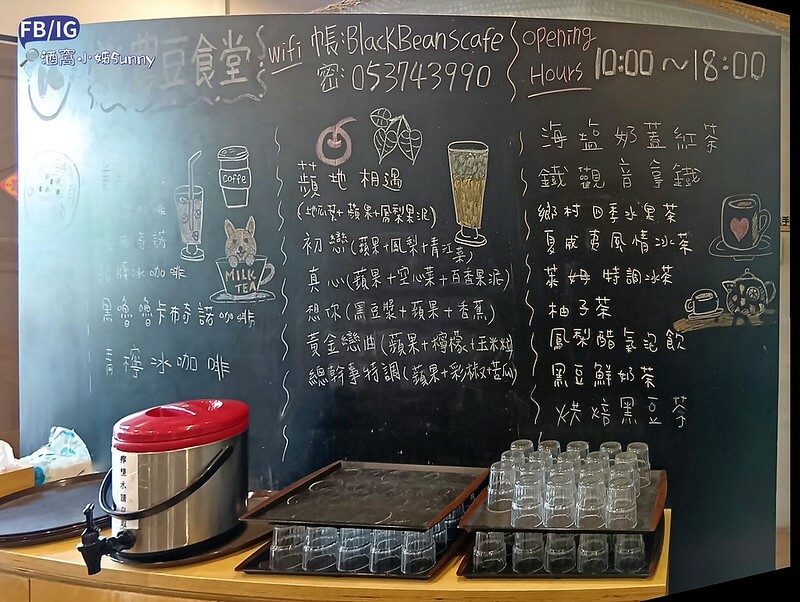 FB/IG
酒窩小姐Sunny
豆食堂
wifi 帳:BlackBeanscafe
密:053743990
opening
Hours
10:00～18:00
coffe
MILK
TEA
冰咖啡
黑嚕嚕卡布奇諾咖啡
青檸冰咖啡
蘋地相遇
(地瓜葉+蘋果+鳳梨果泥)
初戀(蘋果+鳳梨+青江菜)
真心(蘋果+空心菜+百香果泥)
想你(黑豆漿+蘋果+香蕉)
黃金戀曲(蘋果+檸檬+玉米粒
總幹事特調(蘋果+彩椒+苦瓜)
海塩奶蓋紅茶
鐵觀音拿鐵
鄉村四季水果茶
夏威夷風情冰茶
萊姆特調冰茶
柚子茶
鳳梨醋氣泡飲
黑豆鮮奶茶
烘焙黑豆茶